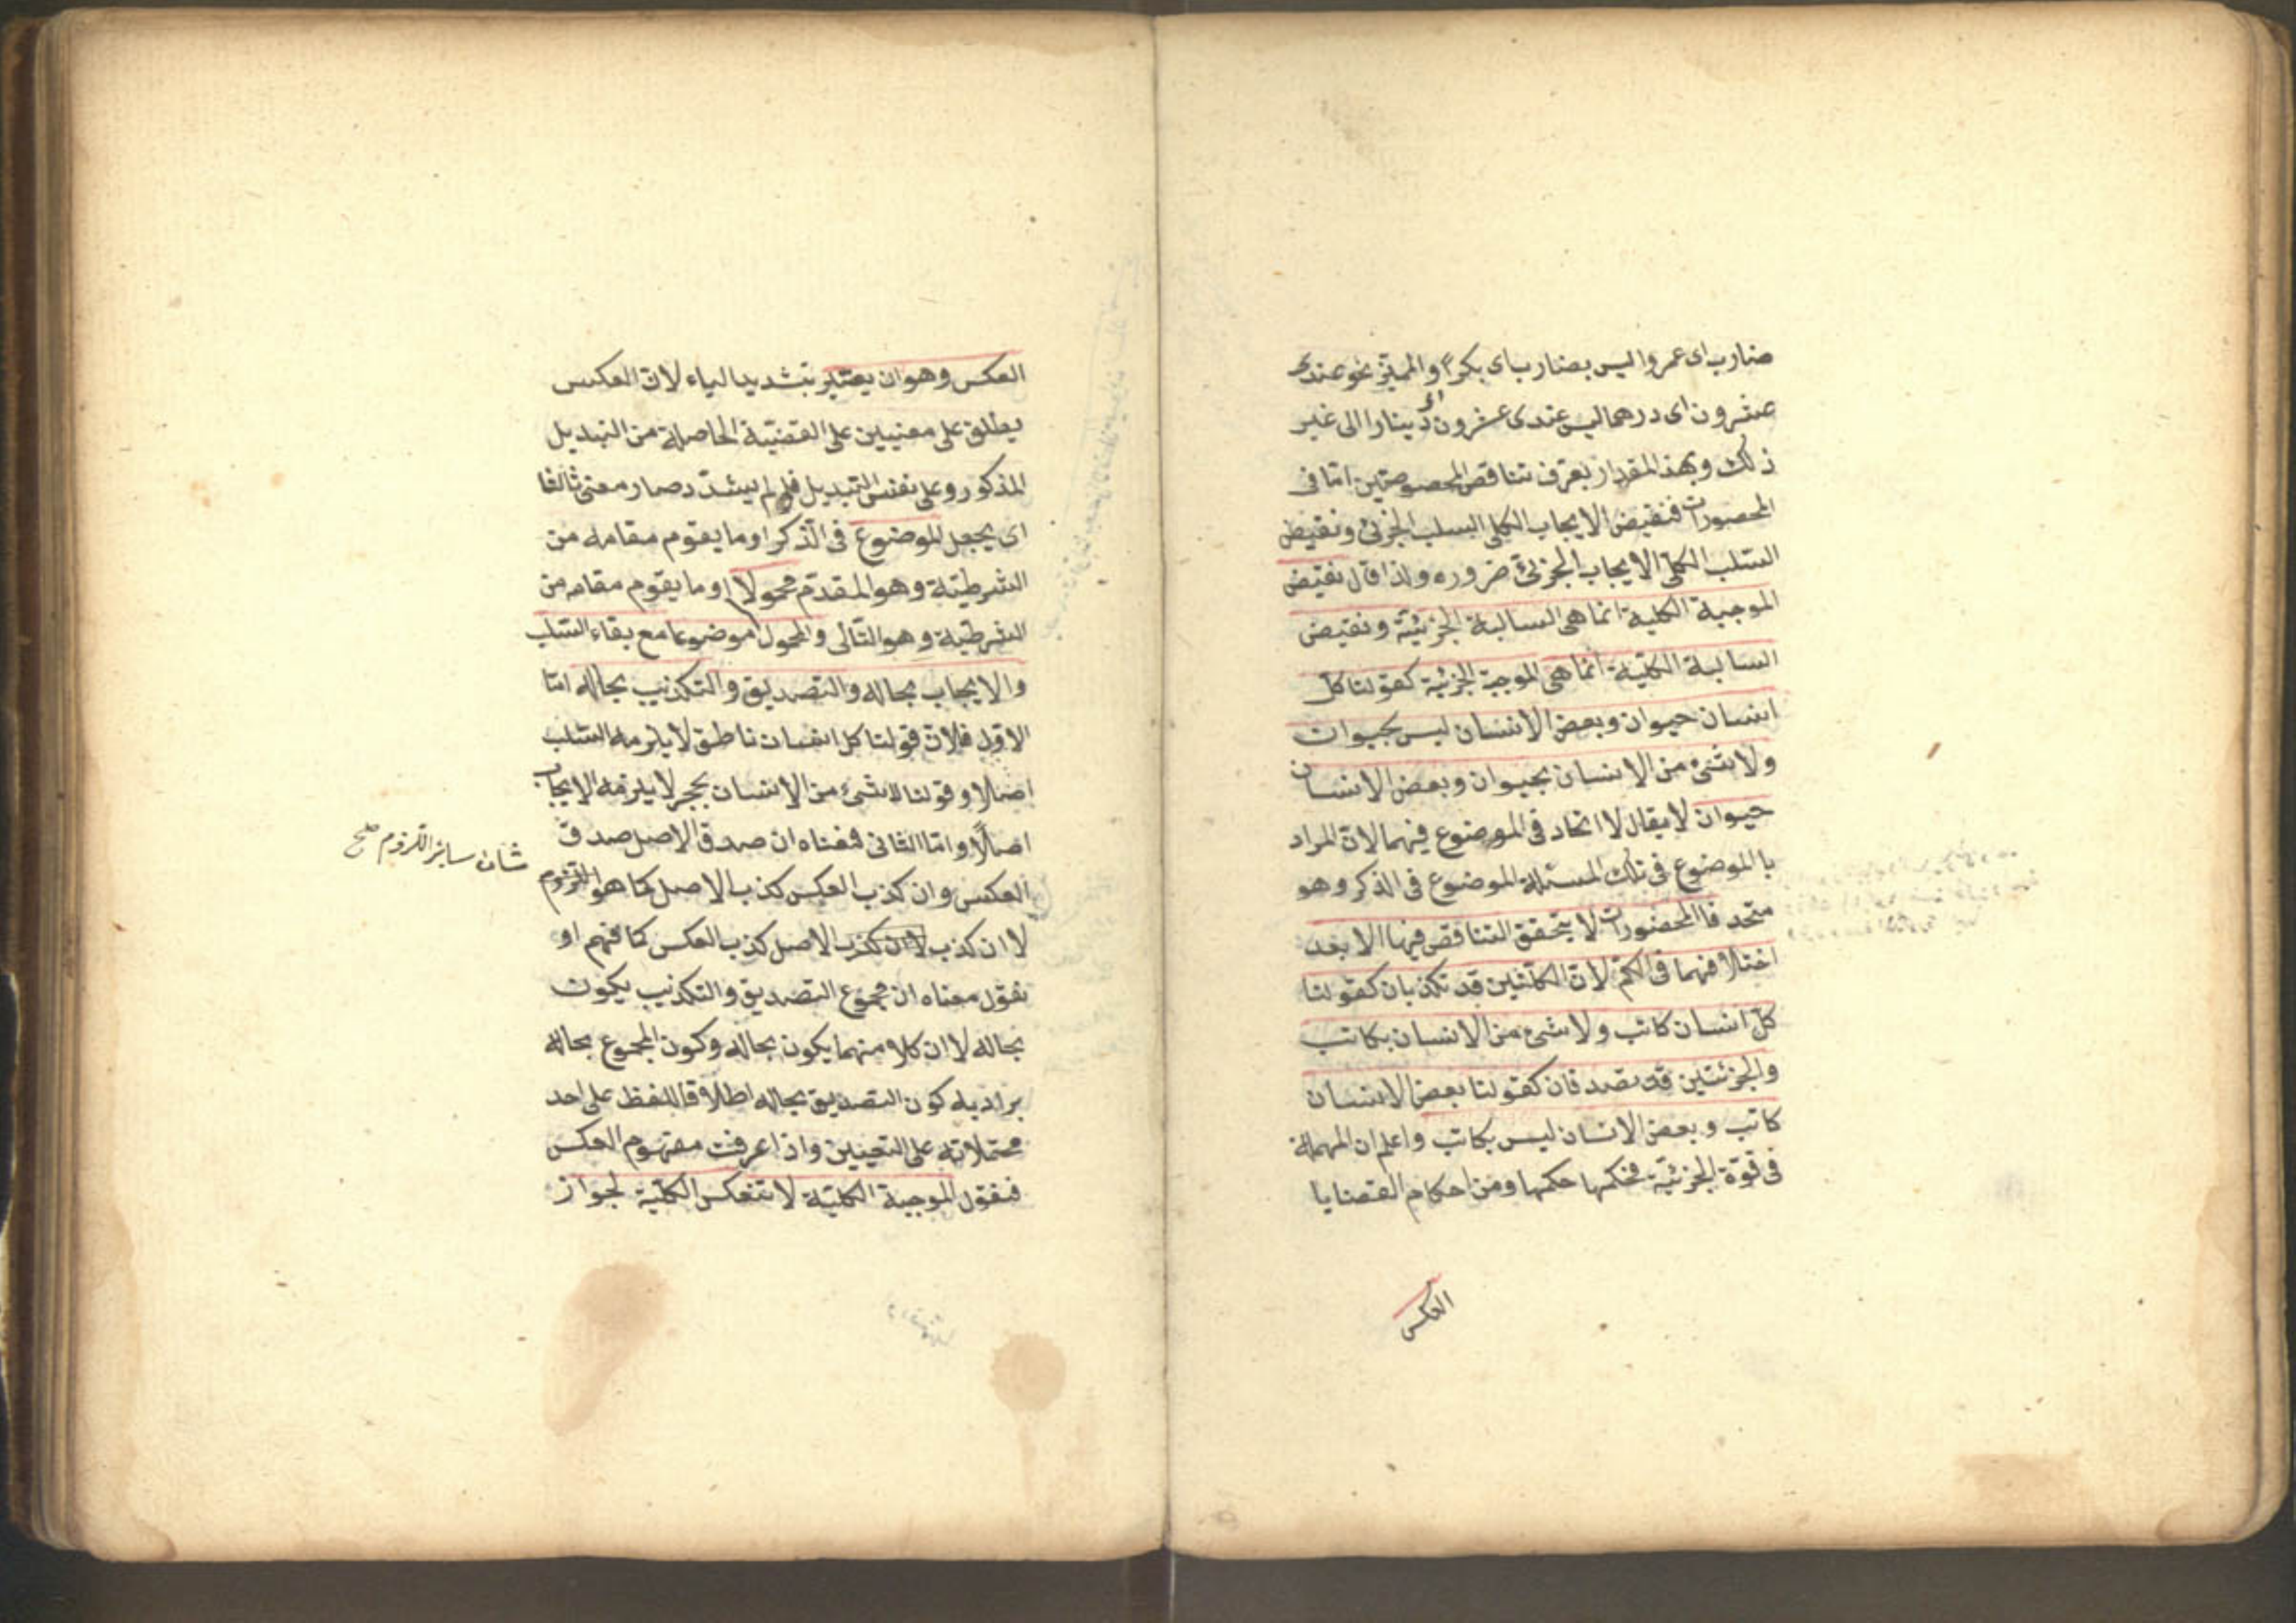 ضارب اى عمروا ليس بضارب اى بكرا والمميز نحو عندى
عشرون اى درهما ليس عندى عشرون اى دينارا الى غير
ذلك وبهذا المقدار يعرف تناقض المخصوصتين امّا فى
المحصورات فنقيض الايجاب الكلى السلب الجزئى ونقيض
السّلب الكلّى الايجاب الجزئىّ ضروره ولذا قال نقيض
الموجبة الكلية انما هى السالبة الجزئيّة ونقيض
السالبة الكليّة انما هى الموجبة الجزئية كقولنا كلّ
انسان حيوان وبعض الانسان ليس بحيوان
ولا شئ من الانسان بحيوان وبعض الانسان
حيوان لا يقال لا اتحاد فى الموضوع فيهما لانّ المراد
بالموضوع فى تلك المسئلة الموضوع فى الذكر وهو
متحد فاالمحصورات لا يتحقق التناقض فيها الا بعد
اختلافهما فى الكمّ لانّ الكلّيتين قد تكذبان كقولنا
كلّ انسان كاتب ولا شئ من الانسان بكاتب
والجزئيتين قد تصدقان كقولنا بعض الانسان
كاتب وبعض الانسان ليس بكاتب واعلم ان المهملة
فى قوّة الجزئيّة فحكمها حكمها ومن احكام القضايا
العكس
العكس وهو ان يصيّر بتشديد الياء لانّ العكس
يطلق على معنيين على القضيّة الحاصلة من التبديل
المذكور وعلى نفس التبديل فلو لم يشدّد صار معنى ثالثا
اى يجعل الموضوع فى الذّكر او ما يقوم مقامه من
الشرطيّة وهو المقدّم محمولا او ما يقوم مقامه من
الشرطية وهو التّالى والمحول موضوعا مع بقاء السّلب
والايجاب بحاله والتصديق والتكذيب بحاله امّا
الاوّل فلانّ قولنا كل انسان ناطق لا يلزمه السّلب
اصلا وقولنا لا شئ من الانسان بحجر لا يلزمه الايجاب
اصلًا وامّا الثانى فمعناه ان صدق الاصل صدق
العكس وان كذب العكس كذب الاصل كما هو اللزوم
شان ساير اللزوم صح
لا ان كذب لا ان كذب الاصل كذب العكس كما فهم او
نقول معناه ان مجموع التصديق والتكذيب يكون
بحاله لا ان كلا منهما يكون بحاله وكون المجموع بحاله
يراد به كون التصديق بحاله اطلاقا للفظ على احد
محتملاته على التعيين واذا عرفت مفهوم العكس
فنقول الموجبة الكليّة لا تنعكس الكليّة لجواز